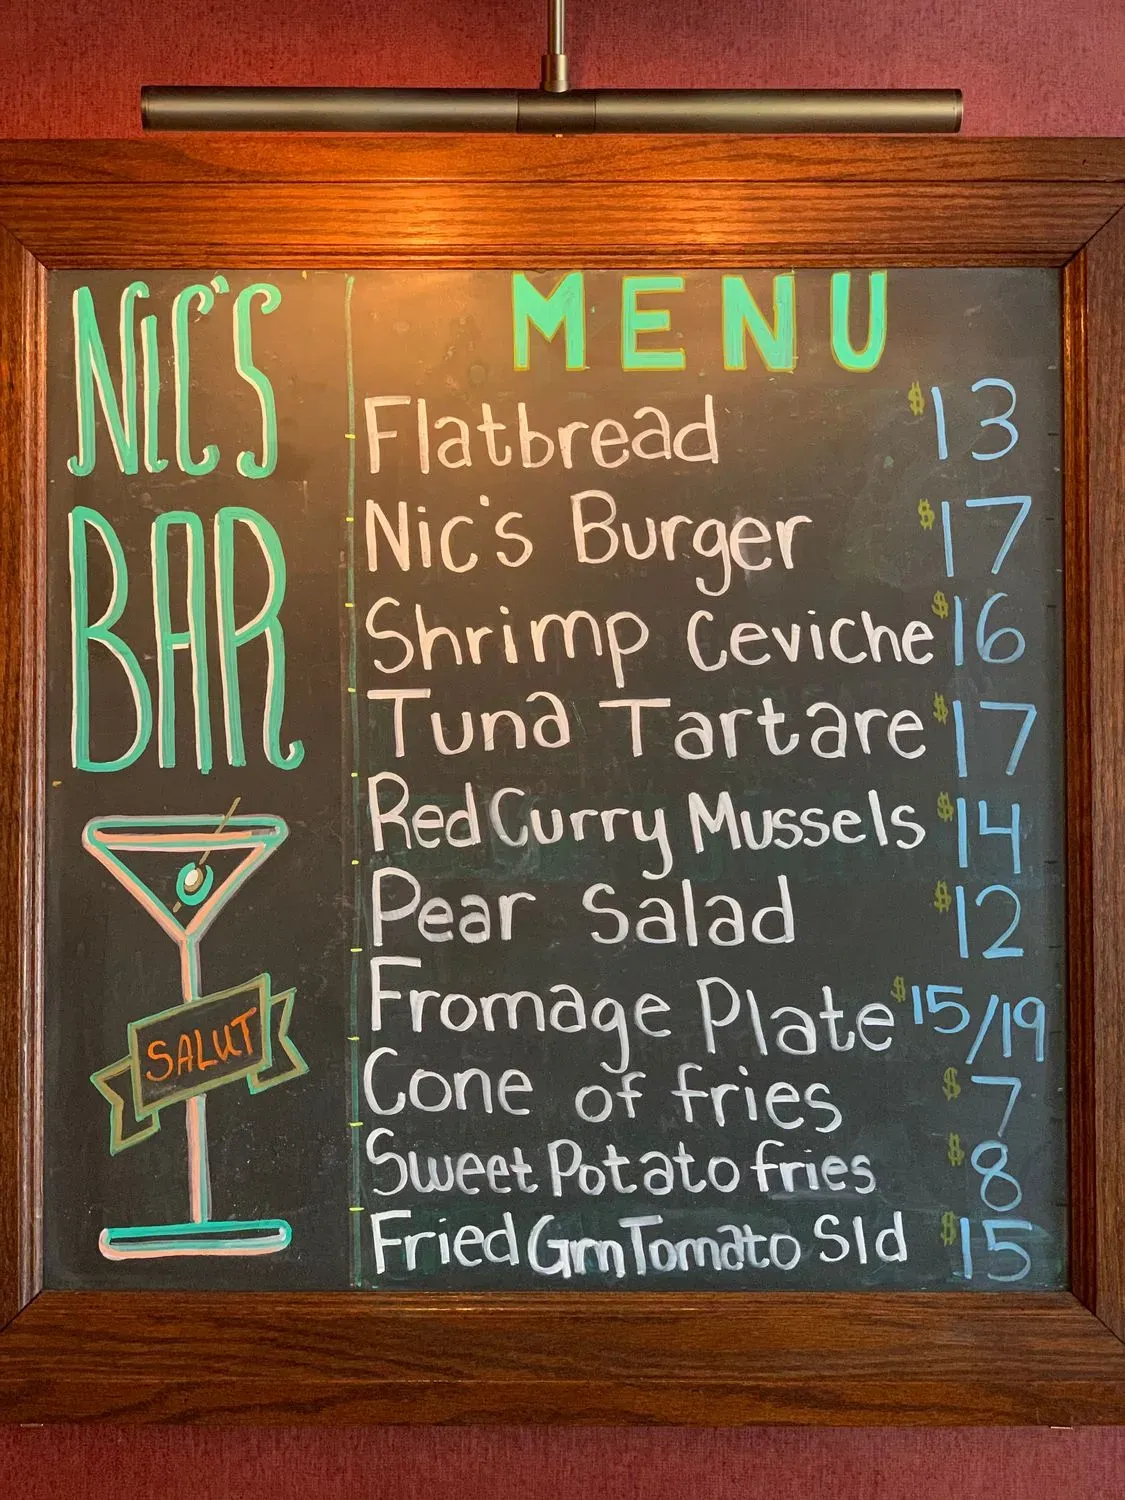 NIC'S
BAR
SALUT
MENU
Flatbread $13
Nic's Burger $17
Shrimp Ceviche $16
Tuna Tartare $17
Red Curry Mussels $14
Pear Salad $12
Fromage Plate $15/19
Cone of fries $7
Sweet Potato fries $8
Fried Grn Tomato Sld $15